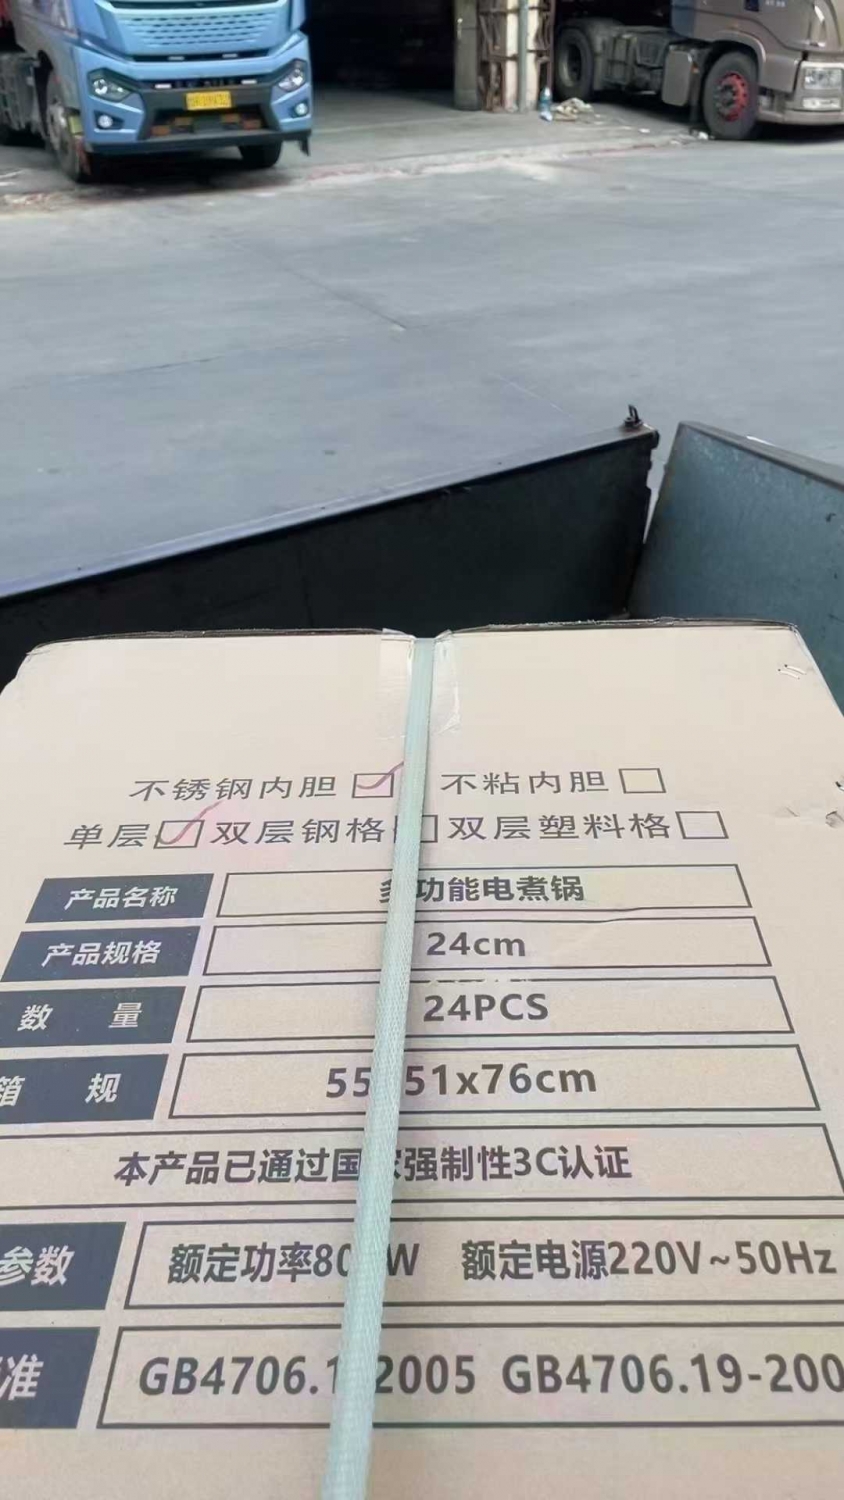 不锈钢内胆 不粘内胆
单层 双层钢格 双层塑料格
产品名称 功能电煮锅
产品规格 24cm
数 量 24PCS
箱 规 55 51x76cm
本产品已通过国 强制性3C认证
参数 额定功率80 W 额定电源220V~50Hz
准 GB4706.1 2005 GB4706.19-200